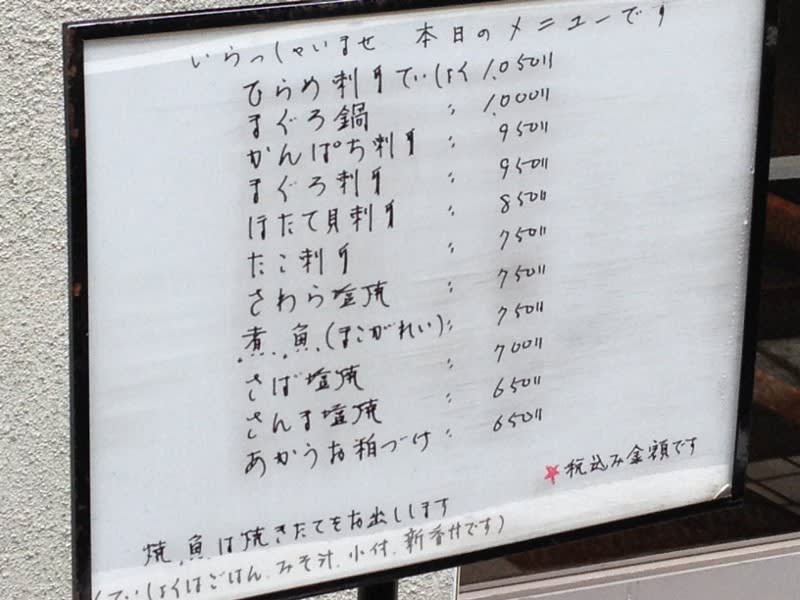 いらっしゃいませ 本日のメニューです
ひらめ刺身ていしょく 1,050〃
まぐろ鍋 〃 1,000〃
かんぱち刺身 〃 950〃
まぐろ刺身 〃 950〃
ほたて貝刺身 〃 850〃
たこ刺身 〃 750〃
さわら塩焼 〃 750〃
煮魚(まこがれい)〃 750〃
さば塩焼 〃 700〃
さんま塩焼 〃 650〃
あかうお粕づけ 〃 650〃
★税込み金額です
焼魚は焼きたてをお出しします
(ていしょくはごはん、みそ汁、小付、新香付です)